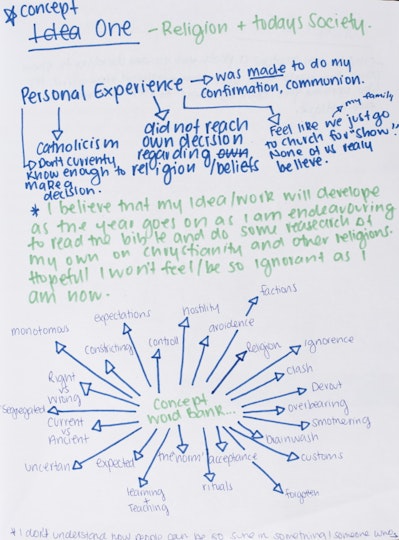 * Concept
Idea One - Religion + todays Society.
Personal Experience
was made to do my
confirmation, communion.
Catholicism
Don't currently
know enough to
make a
decision.
did not reach
own decision
regarding own
religion/beliefs
my family
Feel like we just go
to church for "show".
None of us really
believe.
* I believe that my Idea/work will develope
as the year goes on as I am endeavouring
to read the bible and do some reasearch of
my own on Chrystianity and other religions.
Hopefull I won't feel/be so ignorant as I
am now.
factions
hostility
expectations
avoidence
monotomous
controll
constricting
Religion
ignorence
clash
Right
vs
Wrong
Devout
Concept
Word Bank...
overbearing
segregated
smothering
Current
vs
Ancient
brainwash
customs
uncertan
expected
"the norm"
acceptance
learning
+
teaching
rituals
forgotten
* I don't understand how people can be so sure in something/someone